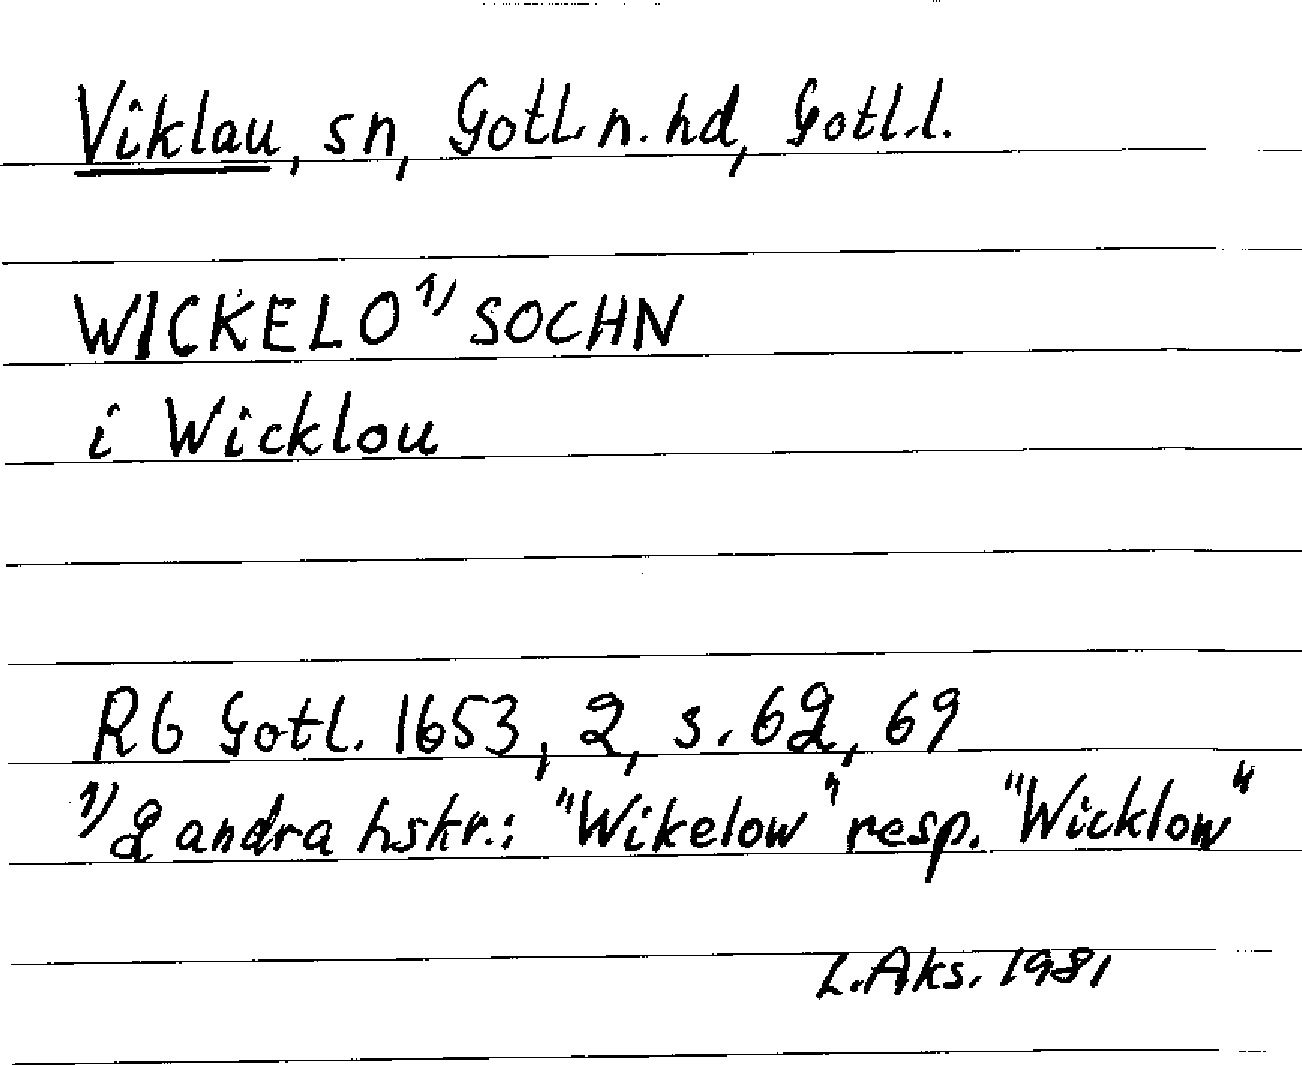 Viklau, sn, Gotl. n. hd, Gotl.l.
WICKELO 1) SOCHN
i Wicklou
RG Gotl. 1653, 2, s. 62, 69
1) 2 andra hskr.: "Wikelow" resp. "Wicklow"
L. Aks. 1981